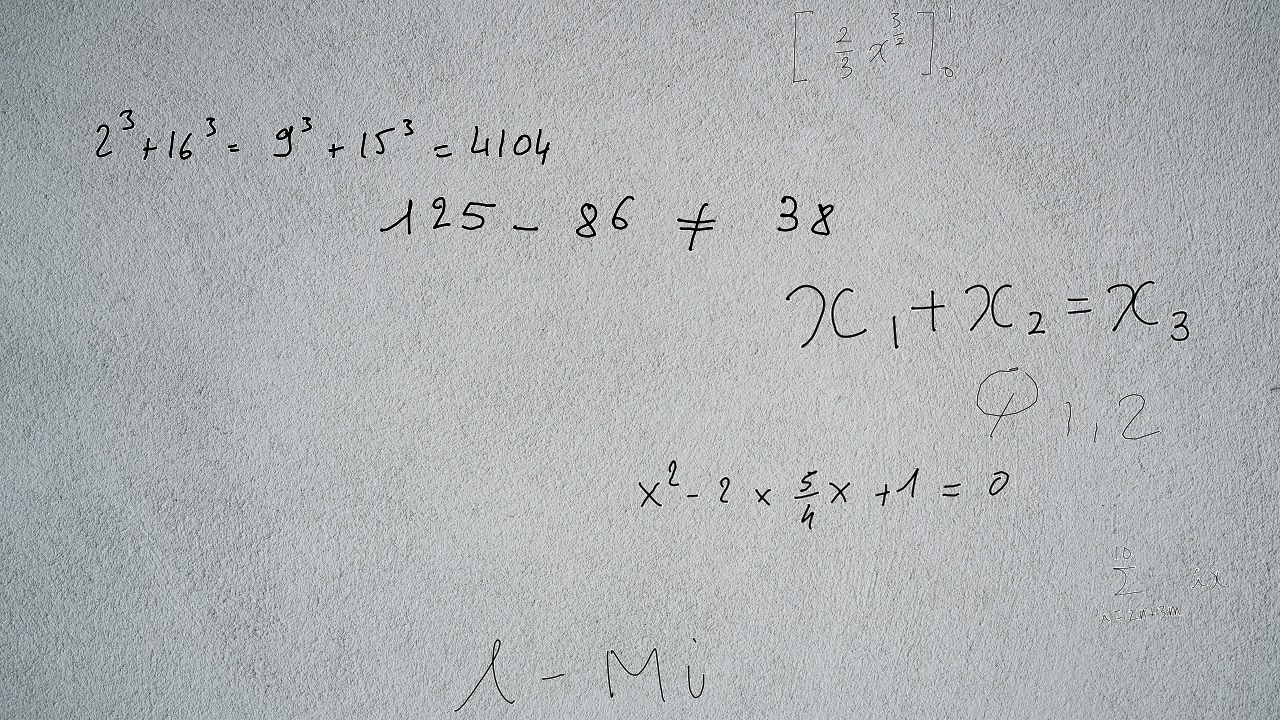 [ 2/3 x^{3/2} ]_0^1
2³ + 16³ = 9³ + 15³ = 4104
125 - 86 ≠ 38
x₁ + x₂ = x₃
φ 1,2
x² - 2 × 5/4 x + 1 = 0
∑_{i=2n+3m}^{10} ix
λ - Mi